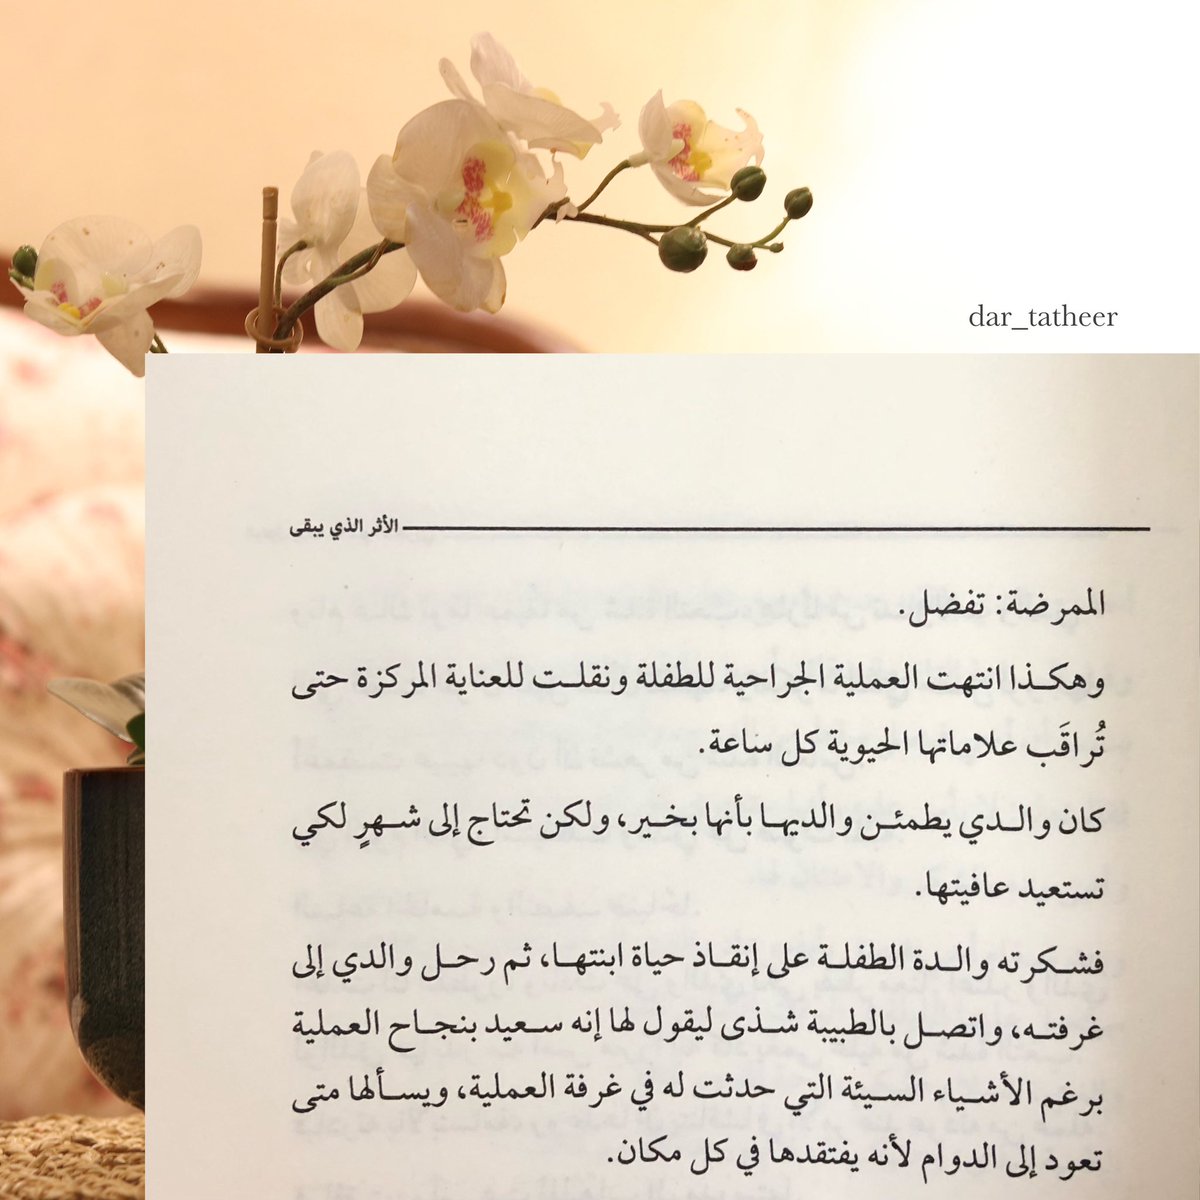 dar_tatheer
الأثر الذي يبقى
الممرضة: تفضل.
وهكذا انتهت العملية الجراحية للطفلة ونقلت للعناية المركزة حتى
تُراقَب علاماتها الحيوية كل ساعة.
كان والدي يطمئن والديها بأنها بخير، ولكن تحتاج إلى شهرٍ لكي
تستعيد عافيتها.
فشكرته والدة الطفلة على إنقاذ حياة ابنتها، ثم رحل والدي إلى
غرفته، واتصل بالطبيبة شذى ليقول لها إنه سعيد بنجاح العملية
برغم الأشياء السيئة التي حدثت له في غرفة العملية، ويسألها متى
تعود إلى الدوام لأنه يفتقدها في كل مكان.